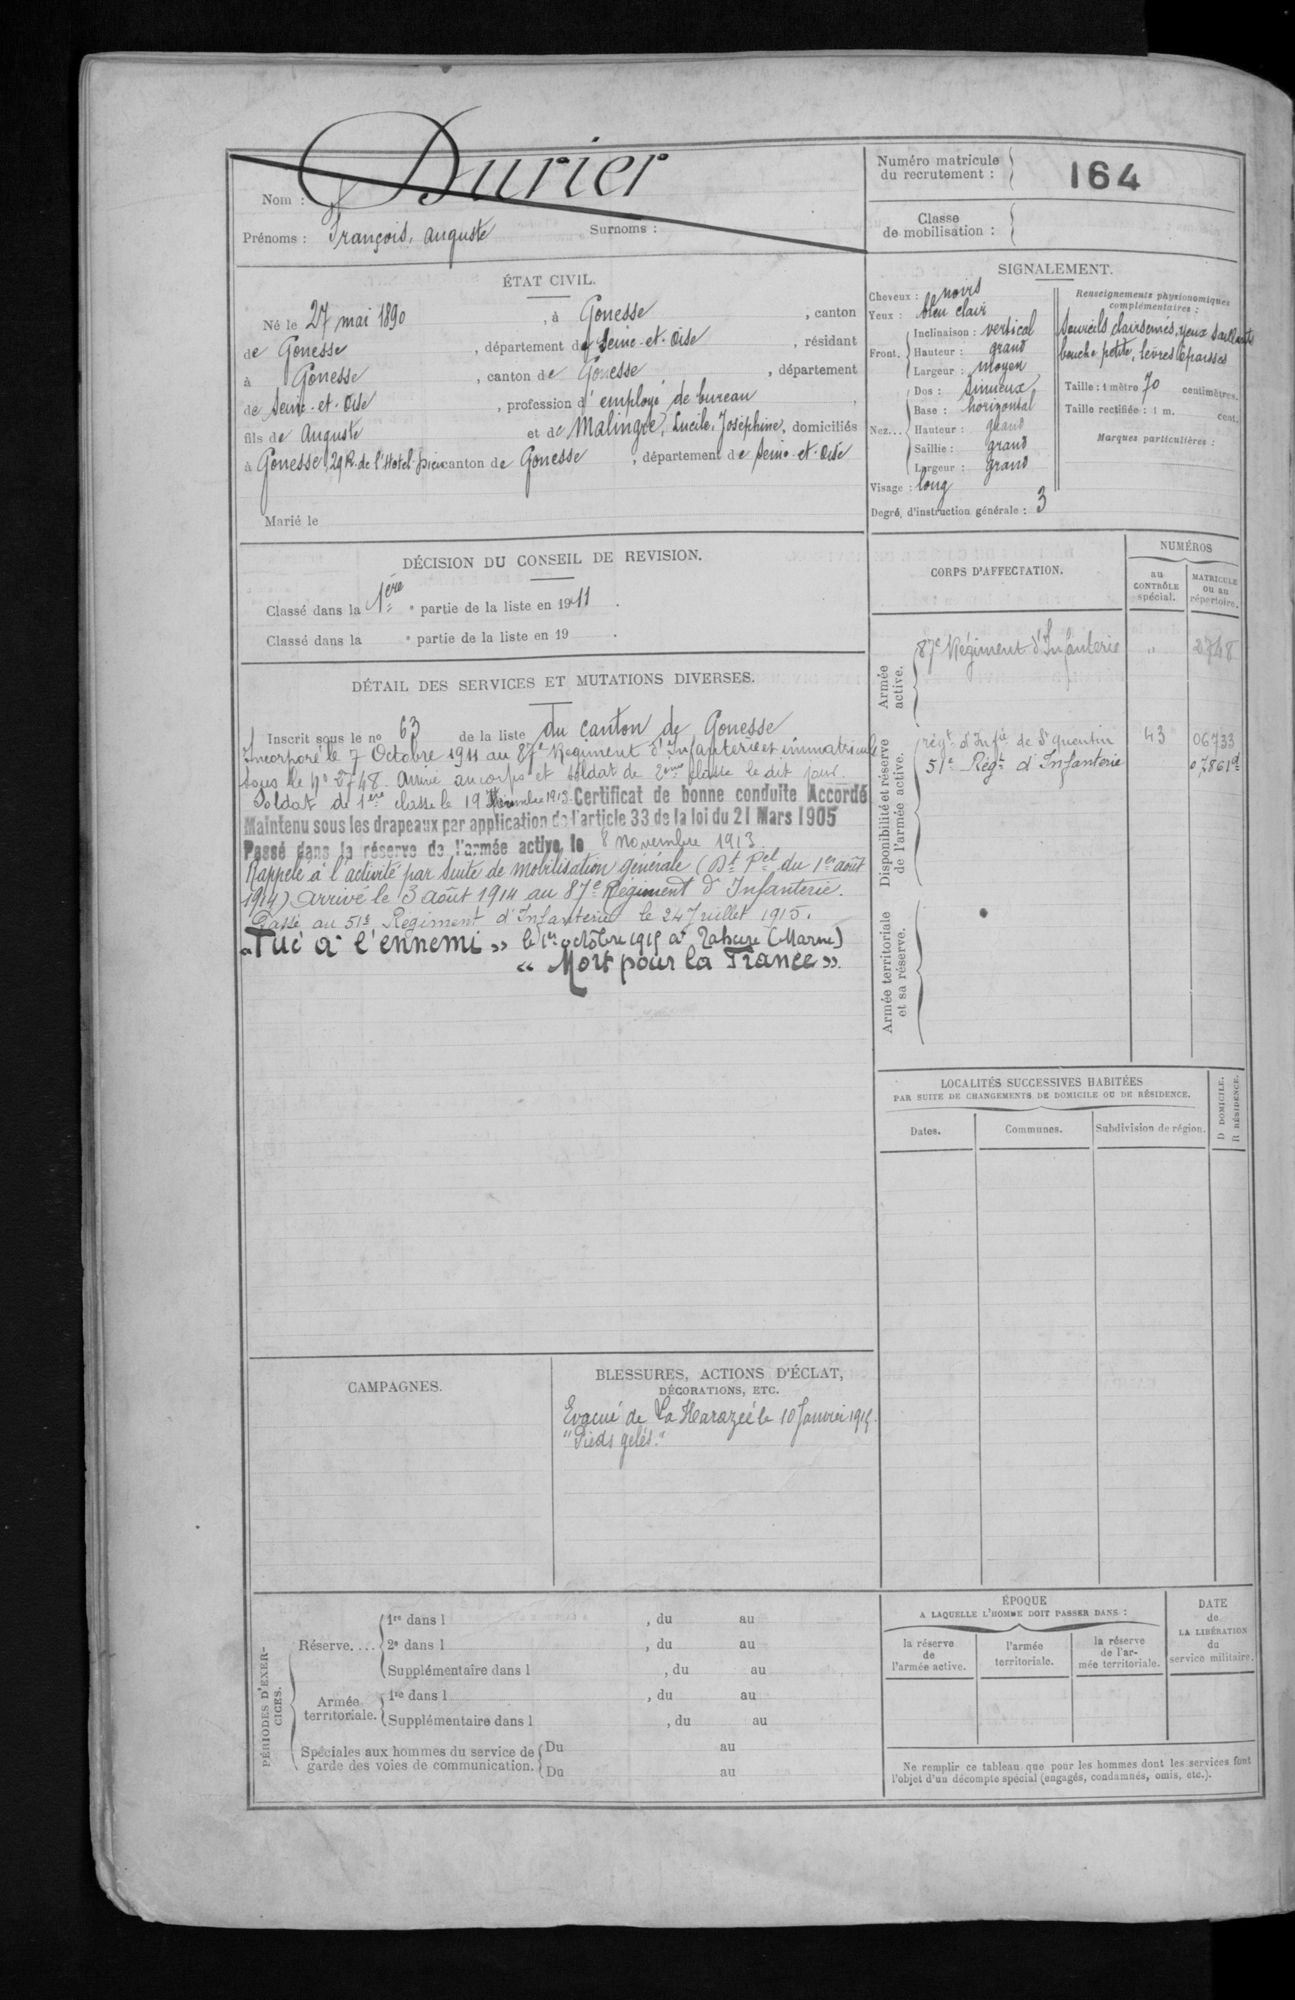 Nom : Durier
Prénoms : François, auguste Surnoms :
Numéro matricule
du recrutement :
164
Classe
de mobilisation :
ÉTAT CIVIL.
Né le 27 mai 1890, à Gonesse, canton
de Gonesse, département de Seine-et-Oise, résidant
à Gonesse, canton de Gonesse, département
de Seine-et-Oise, profession d'employé de bureau,
fils de Auguste et de Malingre, Lucile, Joséphine, domiciliés
à Gonesse, 29 R. de l'Hotel-Dieu canton de Gonesse, département de Seine-et-Oise
Marié le
SIGNALEMENT.
Cheveux : noirs
Yeux : bleu clair
Front. Inclinaison : vertical
Hauteur : grand
Largeur : moyen
Nez... Dos : sinueux
Base : horizontal
Hauteur : grand
Saillie : grand
Largeur : grand
Visage : long
Degré d'instruction générale : 3
Renseignements physionomiques
complémentaires :
Sourcils clairsemés, yeux saillants
bouche petite, lèvres épaisses
Taille : 1 mètre 70 centimètres.
Taille rectifiée : 1 m. cent.
Marques particulières :
DÉCISION DU CONSEIL DE REVISION.
Classé dans la 1ère e partie de la liste en 1911.
Classé dans la e partie de la liste en 19 .
DÉTAIL DES SERVICES ET MUTATIONS DIVERSES.
Inscrit sous le no 63 de la liste du canton de Gonesse
Incorporé le 7 Octobre 1911 au 87e Régiment d'Infanterie et immatriculé
sous le No 2748. Arrivé au corps et soldat de 2ème classe le dit jour.
Soldat de 1ère classe le 19 1913. Certificat de bonne conduite Accordé
Maintenu sous les drapeaux par application de l'article 33 de la loi du 21 Mars 1905
Passé dans la réserve de l'armée active le 8 novembre 1913.
Rappelé à l'activité par suite de mobilisation générale (Dt Pel du 1er août
1914) arrivé le 3 août 1914 au 87e Régiment d'Infanterie.
Passé au 51e Régiment d'Infanterie le 24 Juillet 1915.
"Tué à l'ennemi" le 1er octobre 1915 à Tahure (Marne)
"Mort pour la France".
CORPS D'AFFECTATION.
NUMÉROS
au
CONTRÔLE
spécial.
MATRICULE
ou au
répertoire.
Armée
active.
87e Régiment d'Infanterie " 2748
Disponibilité et réserve
de l'armée active.
régt d'Infie de St Quentin 43 06733
51e Régt d'Infanterie 07861d
Armée territoriale
et sa réserve.
LOCALITÉS SUCCESSIVES HABITÉES
PAR SUITE DE CHANGEMENTS DE DOMICILE OU DE RÉSIDENCE.
Dates. Communes. Subdivision de région.
D DOMICILE.
R RÉSIDENCE.
CAMPAGNES.
BLESSURES, ACTIONS D'ÉCLAT,
DÉCORATIONS, ETC.
Evacué de La Harazée le 10 Janvier 1915.
"Pieds gelés."
PÉRIODES D'EXER-
CICES.
Réserve.... 1re dans l , du au
2e dans l , du au
Supplémentaire dans l , du au
Armée
territoriale. 1re dans l , du au
Supplémentaire dans l , du au
Spéciales aux hommes du service de
garde des voies de communication. Du au
Du au
ÉPOQUE
A LAQUELLE L'HOMME DOIT PASSER DANS :
la réserve
de
l'armée active.
l'armée
territoriale.
la réserve
de l'ar-
mée territoriale.
DATE
de
LA LIBÉRATION
du
service militaire.
Ne remplir ce tableau que pour les hommes dont les services font
l'objet d'un décompte spécial (engagés, condamnés, omis, etc.).